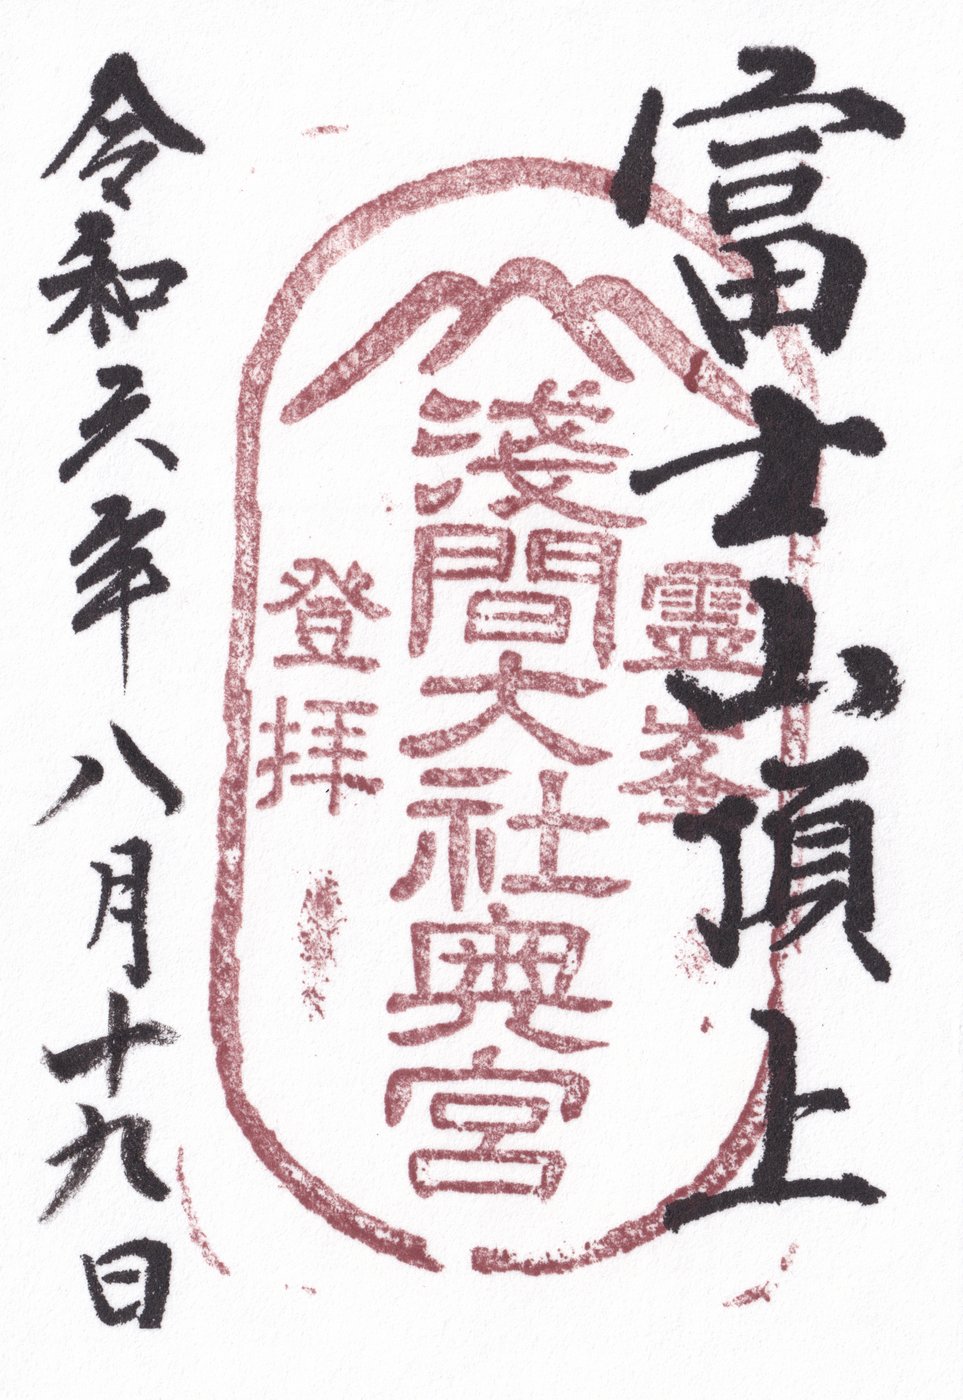 富士山頂上
霊峯
淺間大社奥宮
登拝
令和六年八月十九日